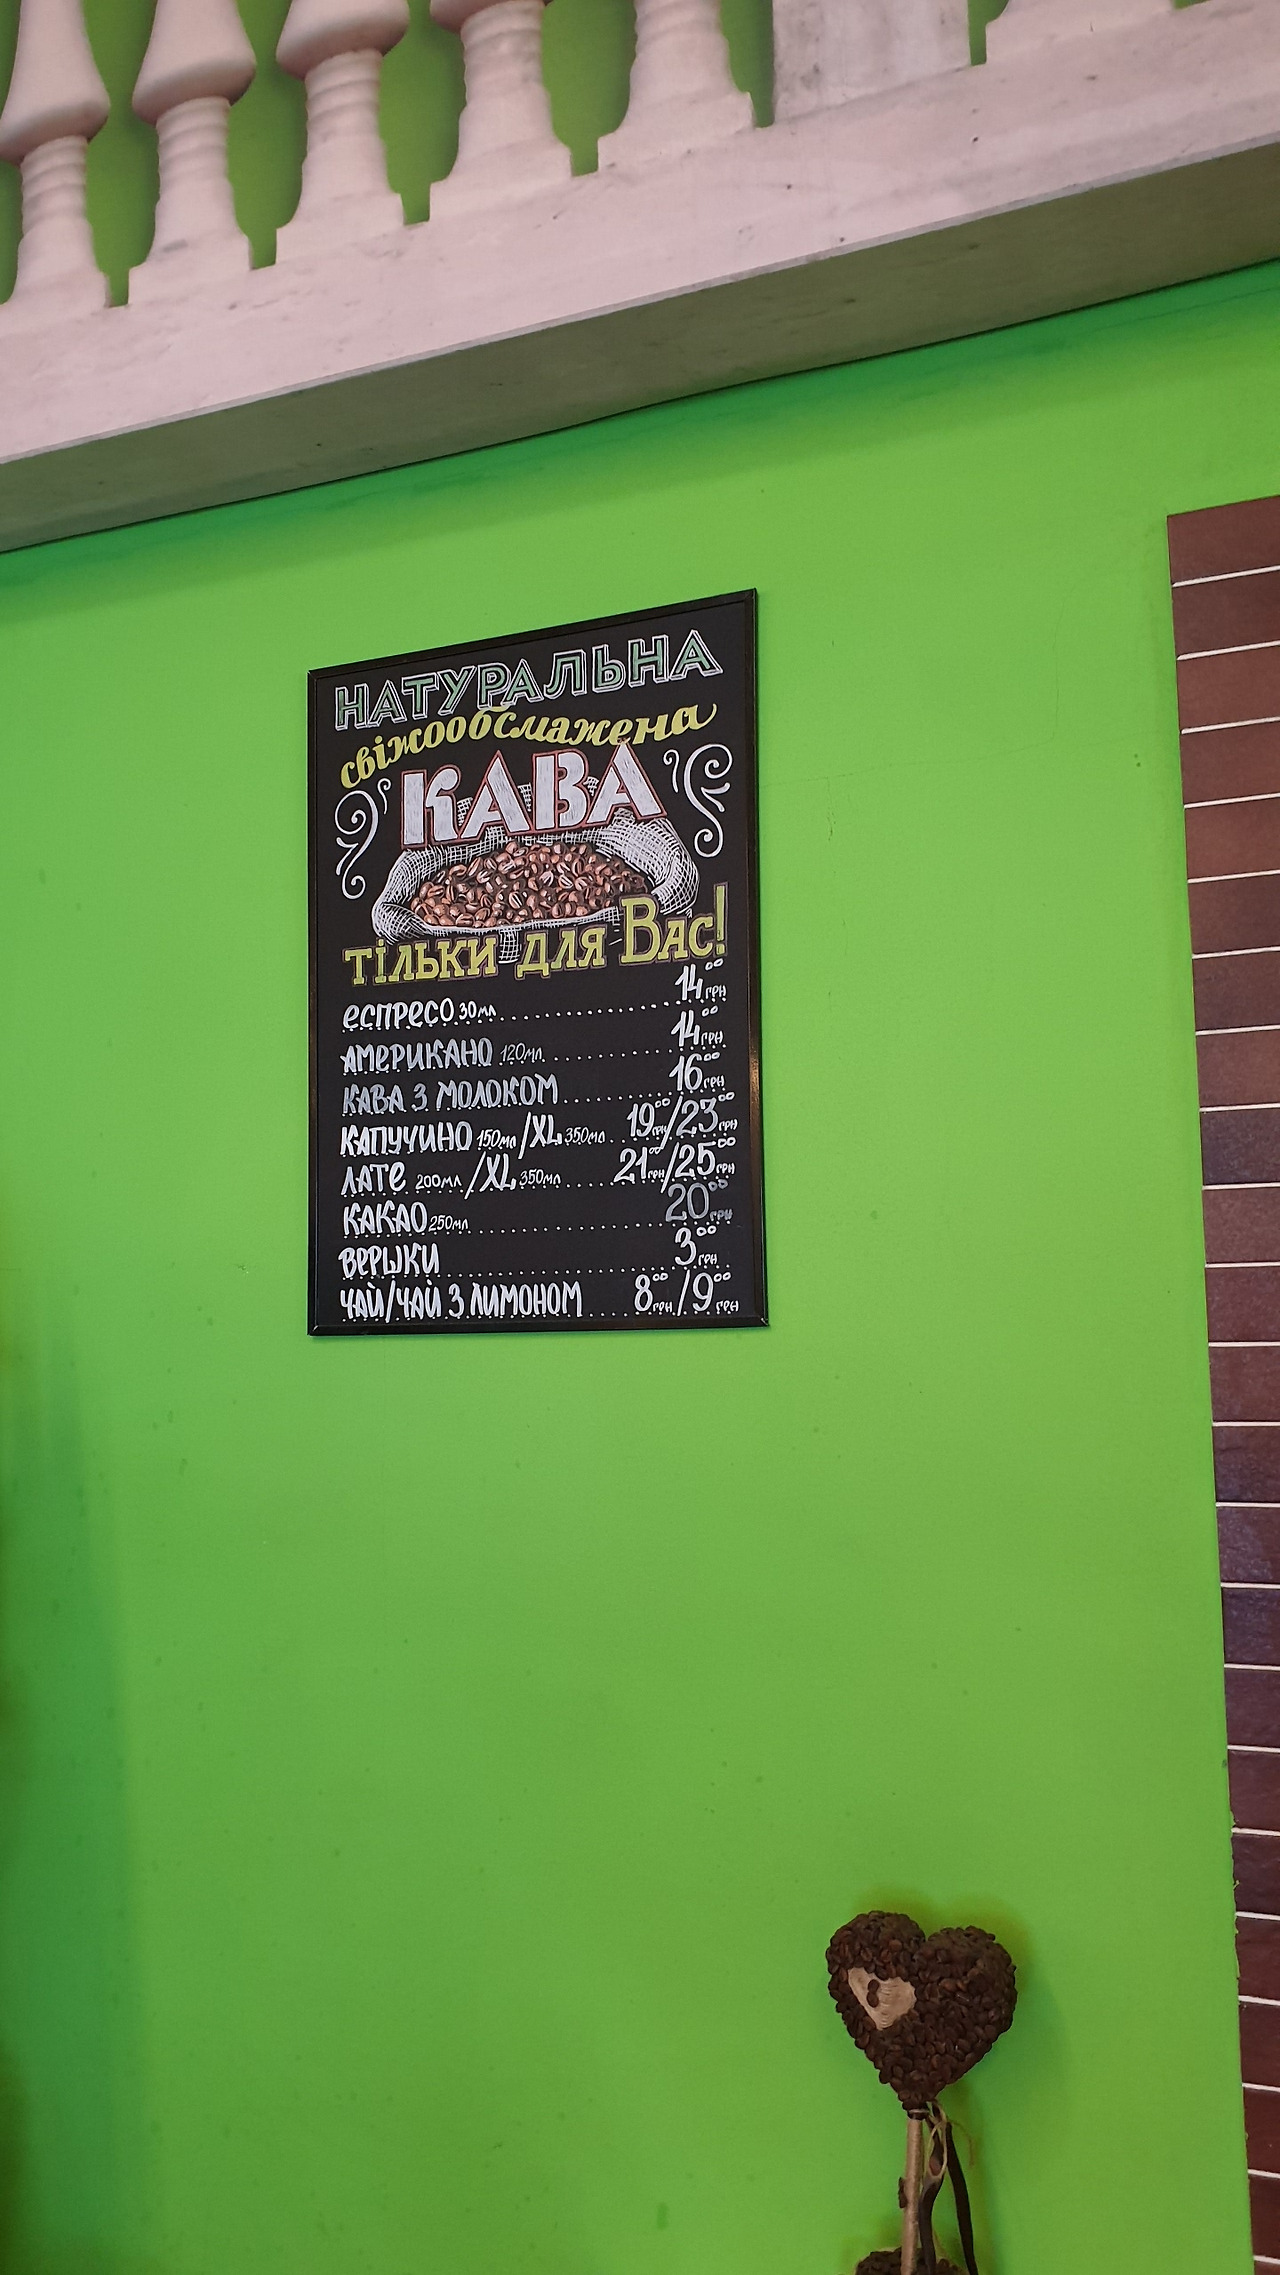 НАТУРАЛЬНА
свіжообсмажена
КАВА
тільки для Вас!
еспресо 30мл.................... 14⁰⁰ грн
американо 120мл.................. 14⁰⁰ грн
кава з молоком.................. 16⁰⁰ грн
капучино 150мл/XL 350мл... 19⁰⁰ грн/23⁰⁰ грн
лате 200мл/XL 350мл..... 21⁰⁰ грн/25⁰⁰ грн
какао 250мл.................... 20⁰⁰ грн
вершки......................... 3⁰⁰ грн
чай/чай з лимоном..... 8⁰⁰ грн/9⁰⁰ грн